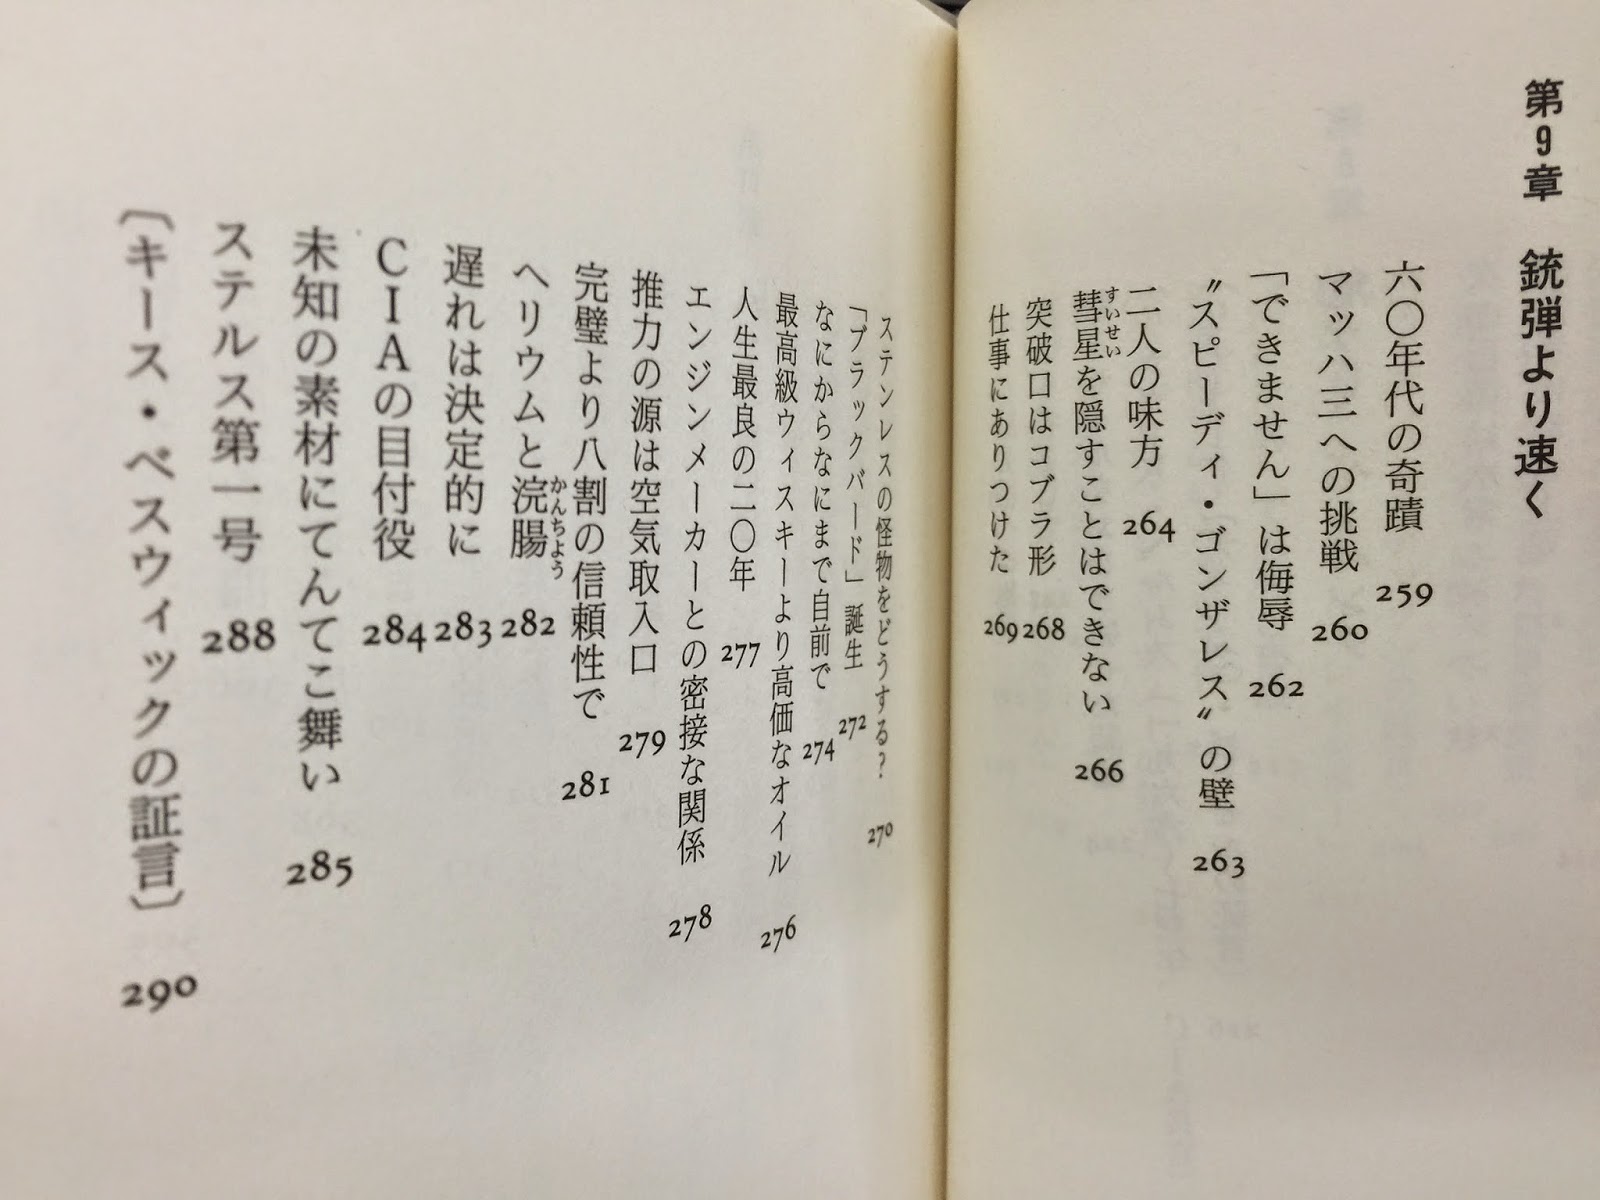 第9章 銃弾より速く
六〇年代の奇蹟 259
マッハ三への挑戦 260
「できません」は侮辱 262
〝スピーディ・ゴンザレス〟の壁 263
二人の味方 264
彗星を隠すことはできない 266
すいせい
突破口はコブラ形 268
仕事にありつけた 269
ステンレスの怪物をどうする? 270
「ブラックバード」誕生 272
なにからなにまで自前で 274
最高級ウィスキーより高価なオイル 276
人生最良の二〇年 277
エンジンメーカーとの密接な関係 278
推力の源は空気取入口 279
完璧より八割の信頼性で 281
ヘリウムと浣腸 282
かんちょう
遅れは決定的に 283
CIAの目付役 284
未知の素材にてんてこ舞い 285
ステルス第一号 288
〔キース・ベスウィックの証言〕 290